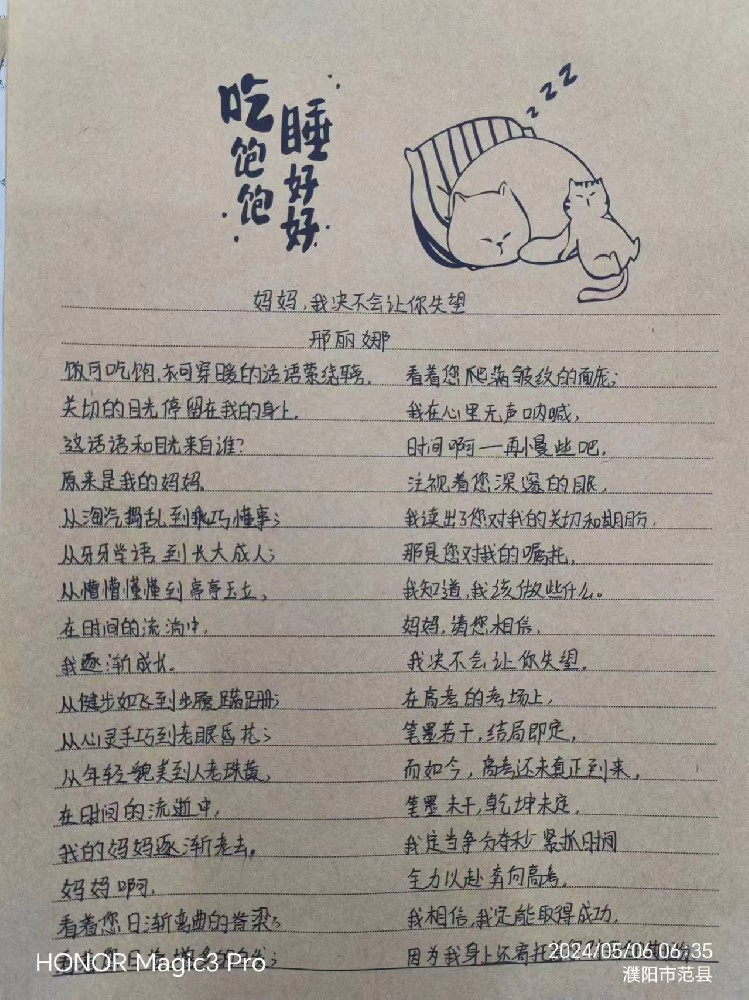 吃饱饱
睡好好
z z z
妈妈,我决不会让你失望
邢丽娜
饭可吃饱,衣可穿暖的话语萦绕耳旁,
关切的目光停留在我的身上。
这话语和目光来自谁?
原来是我的妈妈。
从淘气捣乱到乖巧懂事;
从牙牙学语到长大成人;
从懵懵懂懂到亭亭玉立,
在时间的流淌中,
我逐渐成长。
从健步如飞到步履蹒跚;
从心灵手巧到老眼昏花;
从年轻貌美到人老珠黄,
在时间的流逝中,
我的妈妈逐渐老去。
妈妈啊,
看着您日渐弯曲的脊梁;
看着您爬满皱纹的面庞;
我在心里无声呐喊,
时间啊——再慢些吧,
注视着您深邃的眼,
我读出了您对我的关切和期盼,
那是您对我的嘱托,
我知道,我该做些什么。
妈妈,请您相信,
我决不会让你失望。
在高考的考场上,
笔墨若干,结局即定,
而如今,高考还未真正到来,
笔墨未干,乾坤未定,
我定当争分夺秒 紧抓时间
全力以赴 奔向高考。
我相信,我定能取得成功,
因为我身上还寄托
HONOR Magic3 Pro
2024/05/06 06:35
濮阳市范县